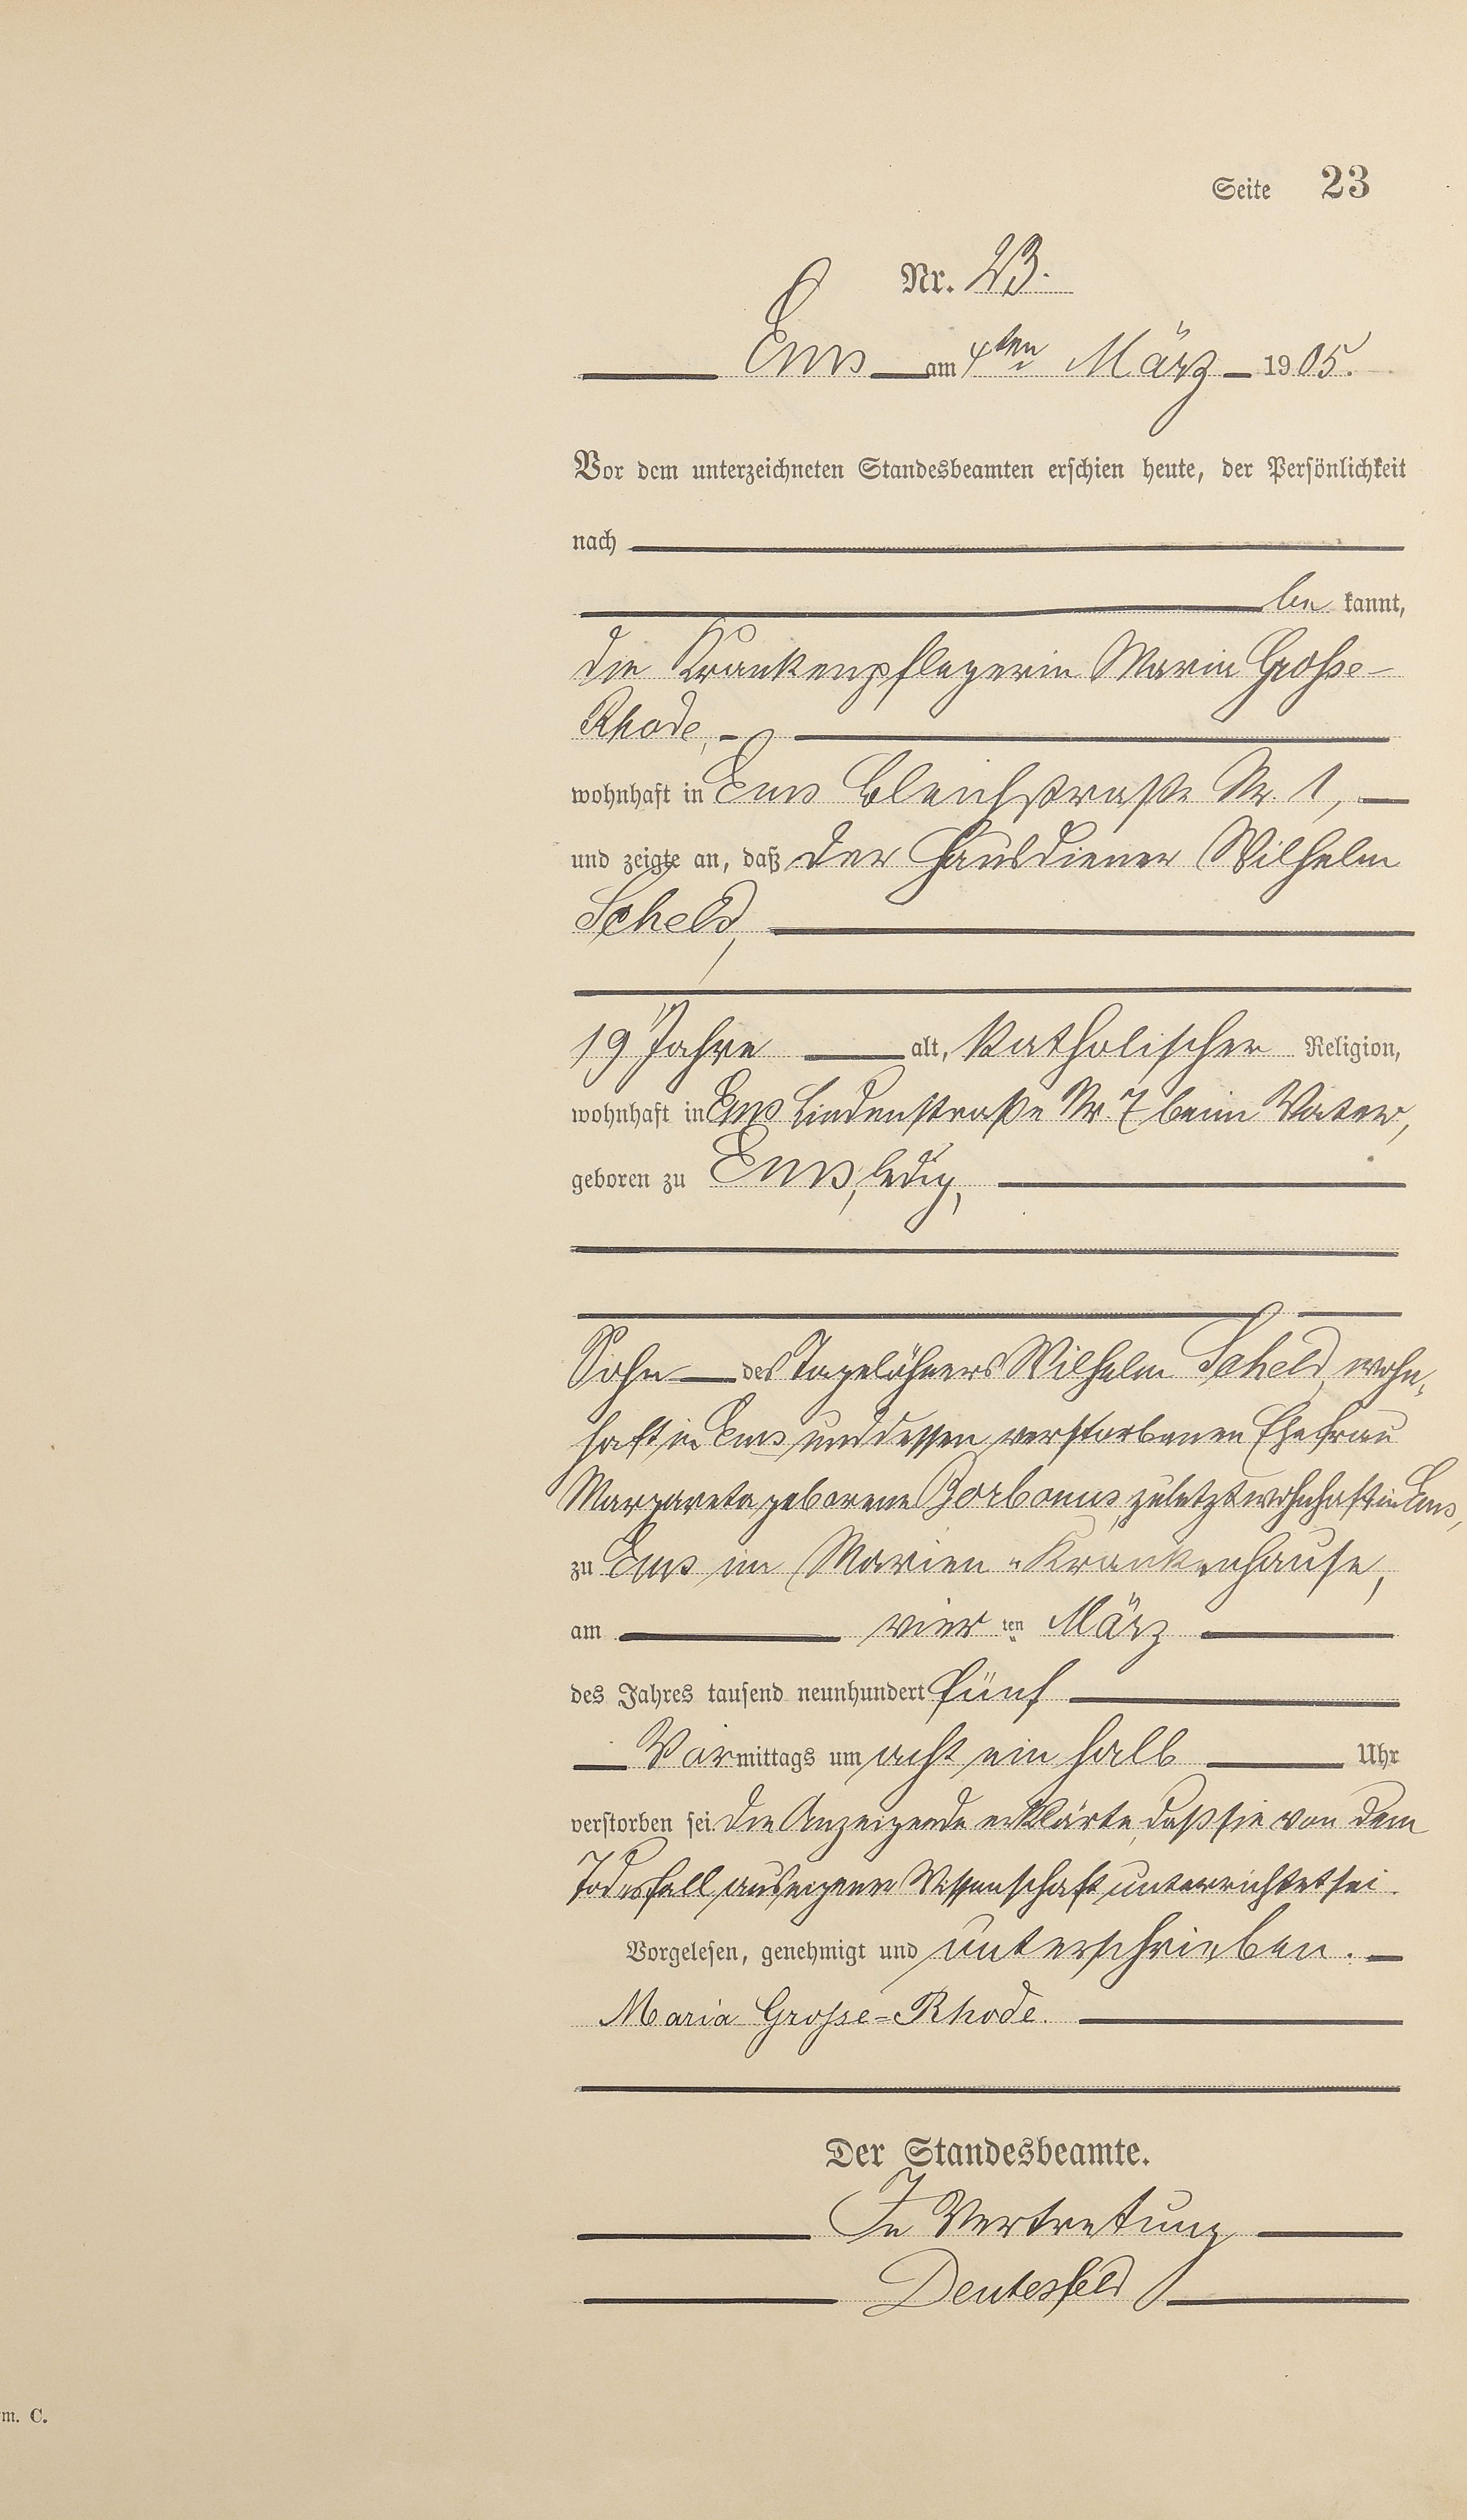 Seite 23
Nr. 23.
Ems am 4ten März 1905.
Vor dem unterzeichneten Standesbeamten erschien heute, der Persönlichkeit
nach
be kannt,
die Krankenpflegerin Maria Grosse-
Rhode,
wohnhaft in Ems Bleichstraße Nr. 1,
und zeigte an, daß der Hausdiener Wilhelm
Scheld,
19 Jahre alt, katholischer Religion,
wohnhaft in Ems Lindenstraße Nr. 7 beim Vater,
geboren zu Ems, ledig,
Sohn des Tagelöhners Wilhelm Scheld, wohn-
haft in Ems und dessen verstorbenen Ehefrau
Margareta geborene zuletzt wohnhaft in Ems,
zu Ems im Marien-Krankenhause,
am vier ten März
des Jahres tausend neunhundert fünf
Vormittags um acht ein halb Uhr
verstorben sei. Die Anzeigende erklärte, daß sie von dem
Todesfall aus eigener Wissenschaft unterrichtet sei.
Vorgelesen, genehmigt und unterschrieben.
Maria Grosse-Rhode.
Der Standesbeamte.
In Vertretung
Deutesfeld
m. C.